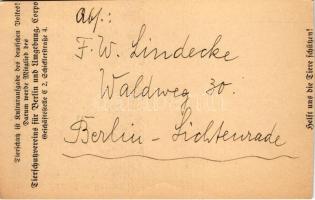 Tierschutz ist Kulturaufgabe des deutschen Volkes!
Darum werde Mitglied des
Tierschutzvereins für Berlin und Umgebung, Corpo
Geschäftsstelle C 2, Schicklerstraße 4.
Abs.:
F. W. Lindecke
Waldweg 30.
Berlin - Lichtenrade
Helft uns die Tiere schützen!